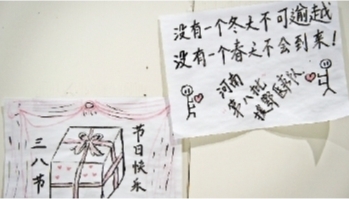 没有一个冬天不可逾越
没有一个春天不会到来！
河南
第八批
援鄂医疗队
节日快乐
三八节